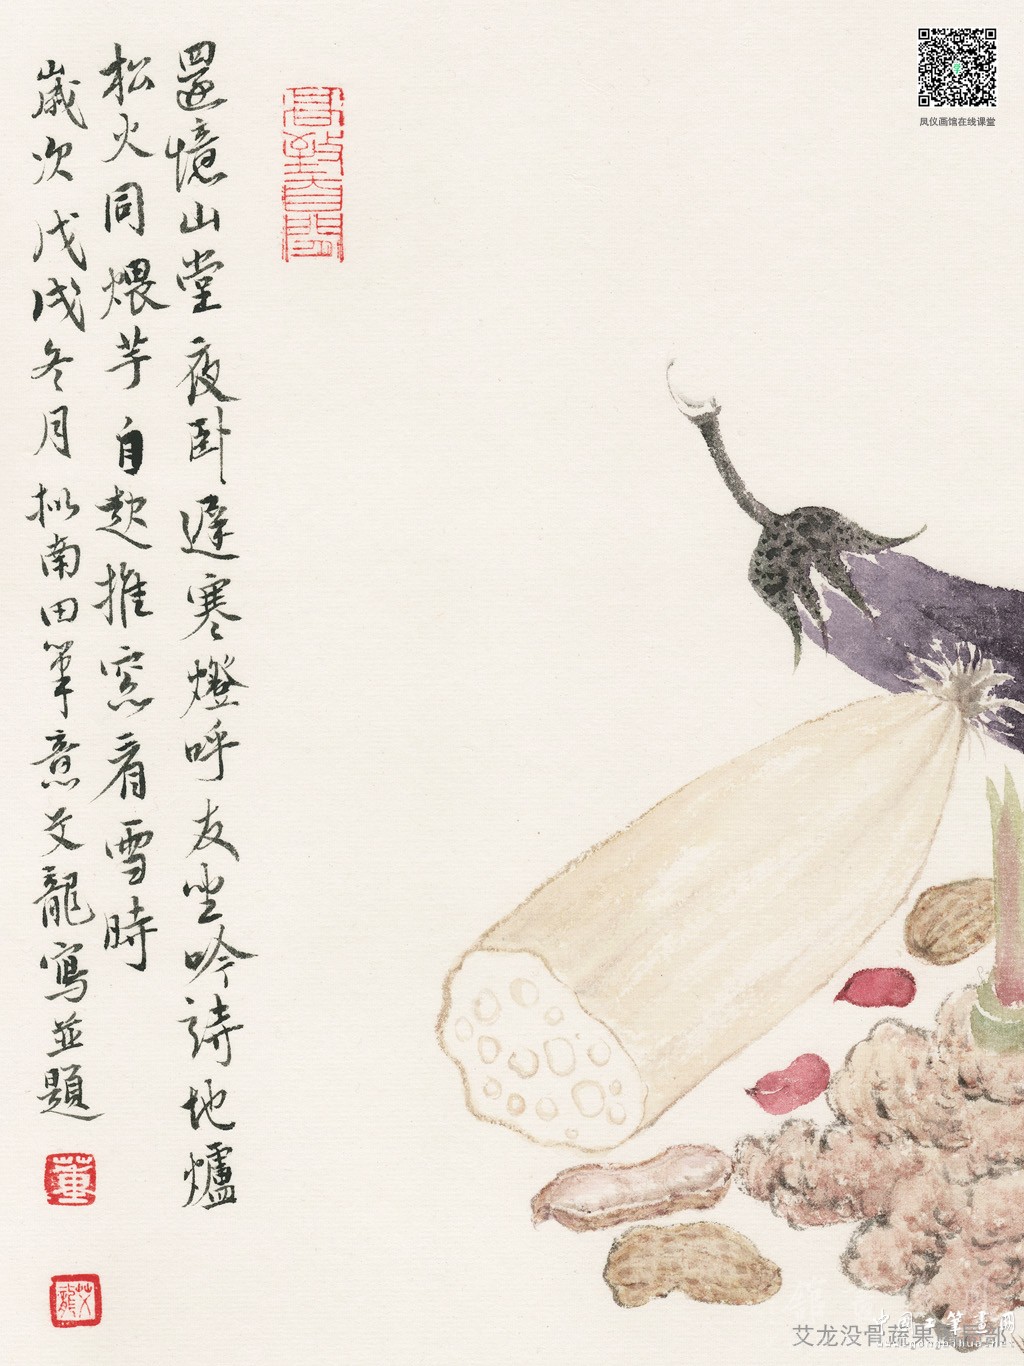 還憶山堂夜卧遲寒燈呼友坐吟詩地爐
松火同煨芋自起推窓看雪時
歲次戊戌冬月拟南田筆意艾龍寫並題
董
艾龍
凤仪画馆在线课堂
中国工笔画网
艾龙没骨蔬果局部